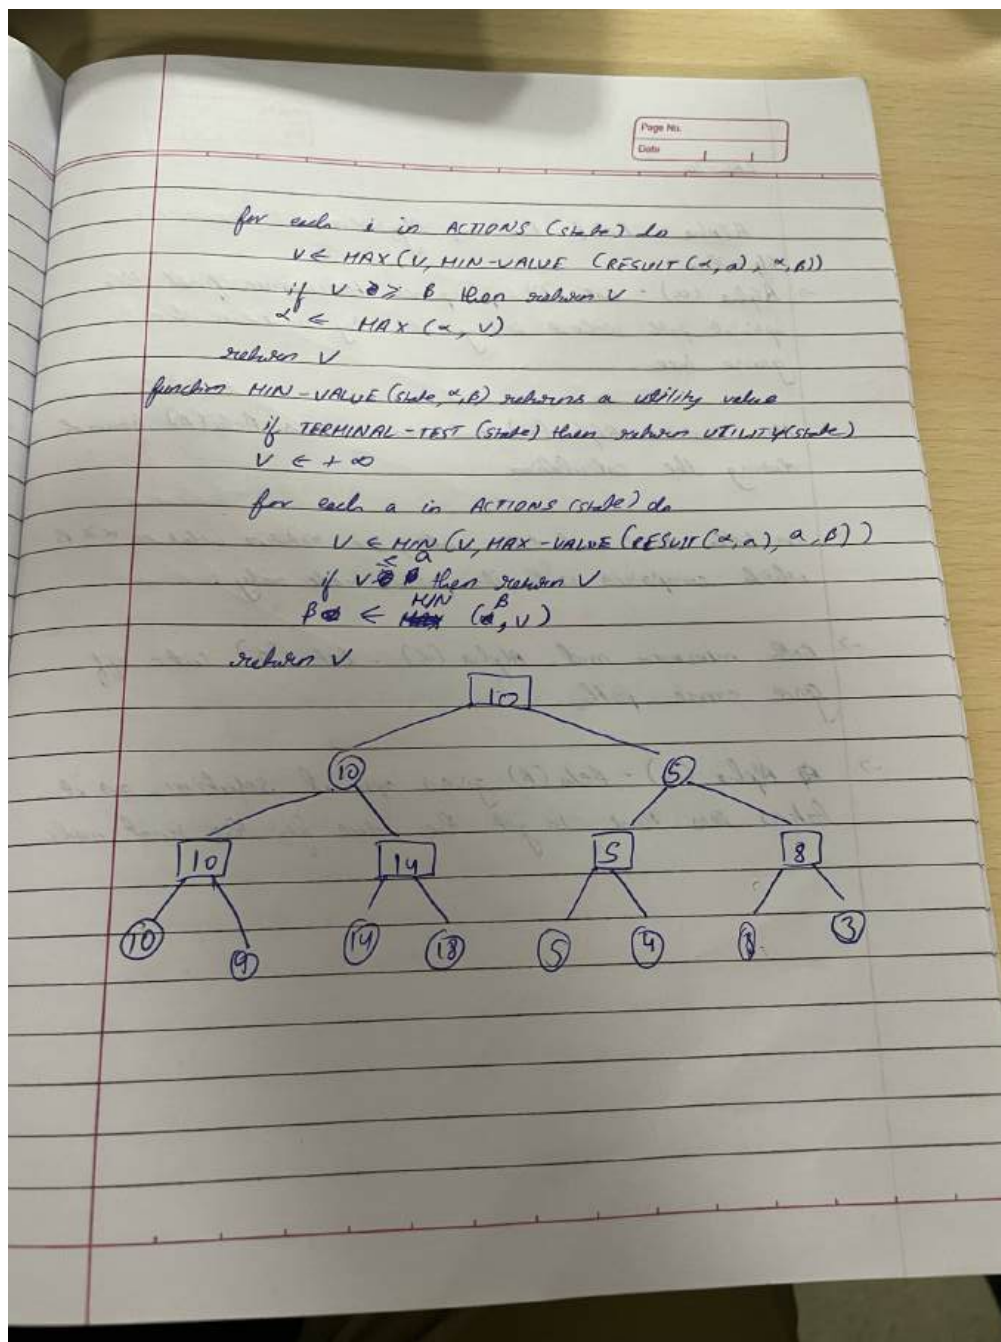 Page No.
Date
for each i in ACTIONS (state) do
V ← MAX (V, MIN-VALUE (RESULT (α, a), α, β))
if V ≥ β then return V
α ← MAX (α, V)
return V
function MIN-VALUE (state, α, β) returns a utility value
if TERMINAL-TEST (state) then return UTILITY (state)
V ← + ∞
for each a in ACTIONS (state) do
V ← MIN (V, MAX-VALUE (RESULT (α, a), a, β))
if V ≤ a then return V
β ← MIN (β, V)
return V
10
10 5
10 14 5 8
10 9 14 18 5 4 8 3